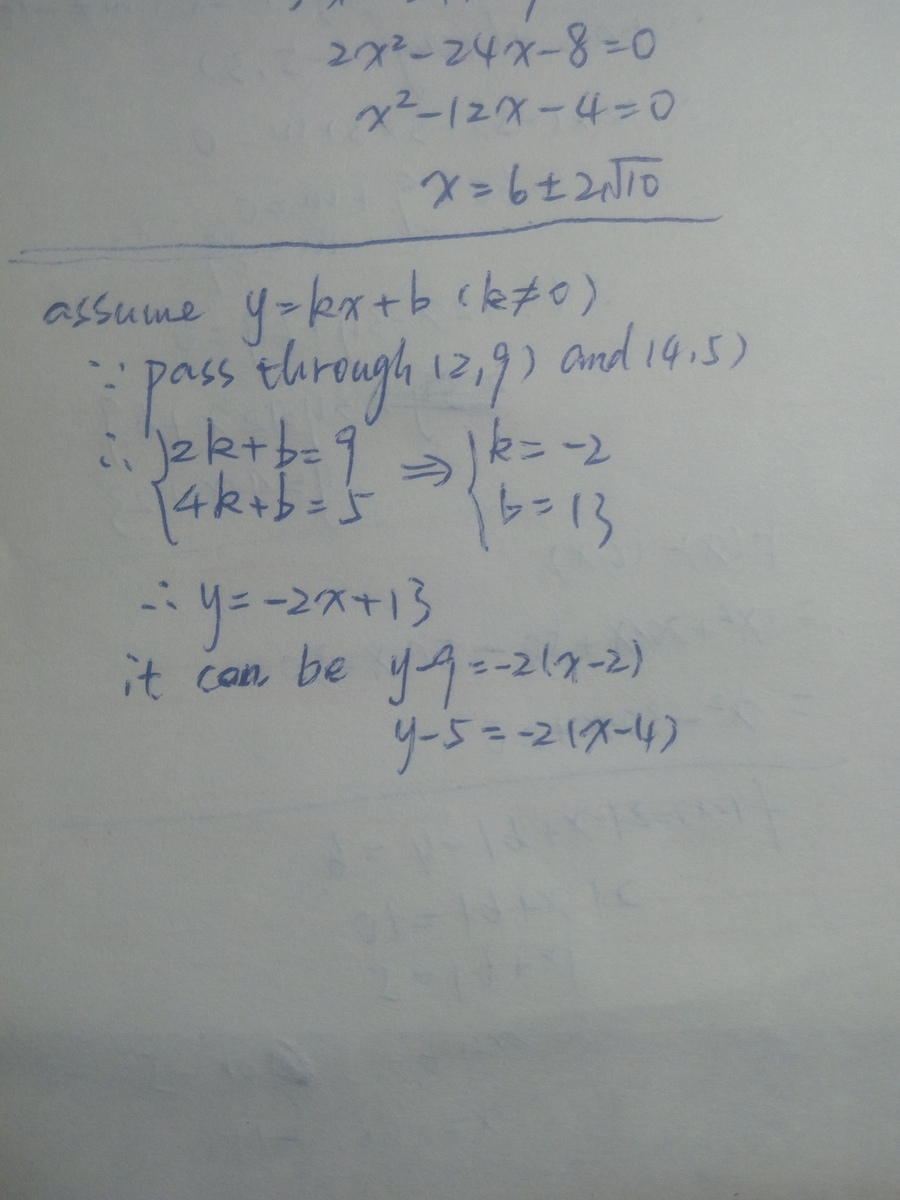 2x²-24x-8=0
x²-12x-4=0
x=6±2√10
assume y=kx+b (k≠0)
∵ pass through (2,9) and (4,5)
∴ {2k+b=9 ⇒ {k=-2
{4k+b=5 {b=13
∴ y=-2x+13
it can be y-9=-2(x-2)
y-5=-2(x-4)